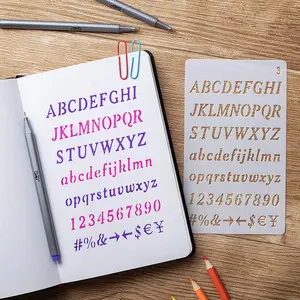 ABCDEFGHI
JKLMNOPQR
STUVWXYZ
abcdefghijklmn
opqrstuvwxyz
1234567890
#%&→←$€¥
3
ABCDEFGHI
JKLMNOPQR
STUVWXYZ
abcdefghijklmn
opqrstuvwxyz
1234567890
#%&→←$€¥